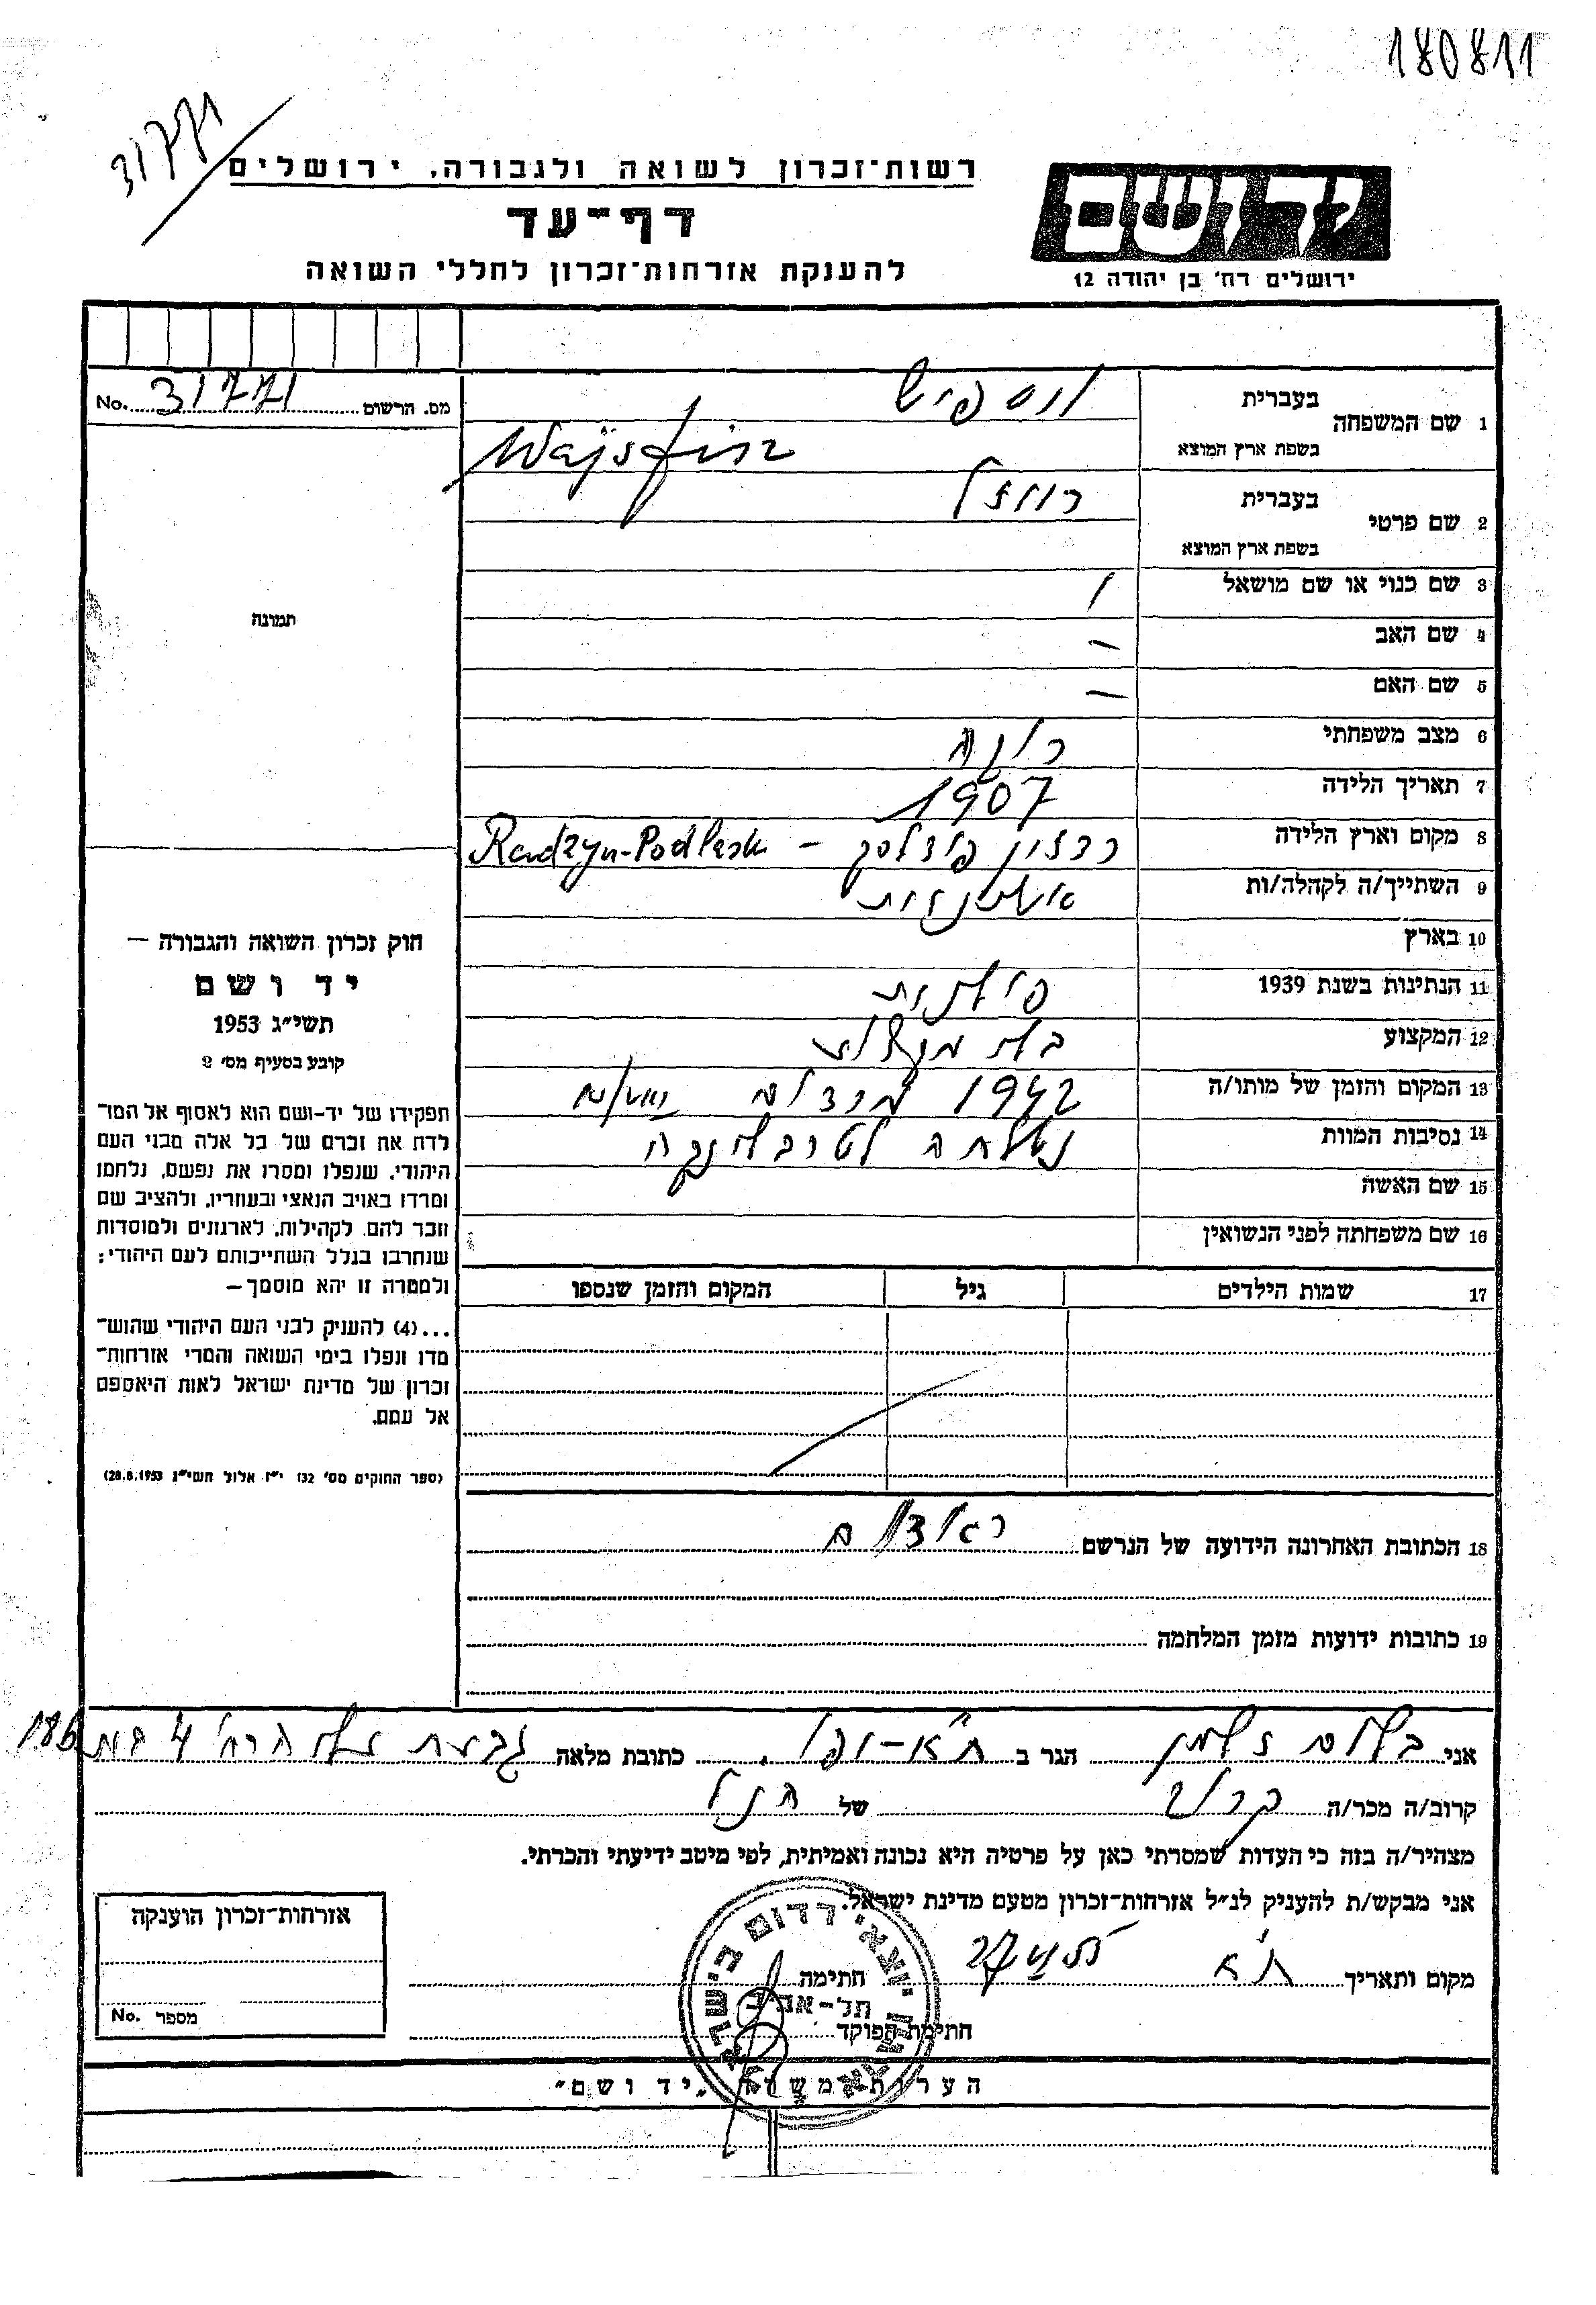 180811
31771
רשות־זכרון לשואה ולגבורה, ירושלים
דף־עד
להענקת אזרחות־זכרון לחללי השואה
יד ושם
ירושלים רח' בן יהודה 12
מס. הרשום 31771 No.
1 שם המשפחה
בעברית ויספיש
בשפת ארץ המוצא Wajsfisz
2 שם פרטי
בעברית רוזל
בשפת ארץ המוצא
3 שם כנוי או שם מושאל /
4 שם האב —
5 שם האם —
6 מצב משפחתי רווקה
7 תאריך הלידה 1907
8 מקום וארץ הלידה רדזין פודלסק – Radzyn-Podlask
9 השתייך/ה לקהלה/ות
10 בארץ
11 הנתינות בשנת 1939 פולנית
12 המקצוע
13 המקום והזמן של מותו/ה 1942
14 נסיבות המוות נשלחה לטרבלינקה
15 שם האשה
16 שם משפחתה לפני הנשואין
17 שמות הילדים גיל המקום והזמן שנספו
18 הכתובת האחרונה הידועה של הנרשם ראדום
19 כתובות ידועות מזמן המלחמה
תמונה
חוק זכרון השואה והגבורה —
יד ושם
תשי"ג 1953
קובע בסעיף מס' 2
תפקידו של יד-ושם הוא לאסוף אל המו־
לדת את זכרם של כל אלה מבני העם
היהודי, שנפלו ומסרו את נפשם, נלחמו
ומרדו באויב הנאצי ובעוזריו, ולהציב שם
וזכר להם, לקהילות, לארגונים ולמוסדות
שנחרבו בגלל השתייכותם לעם היהודי;
ולמטרה זו יהא מוסמך—
...(4) להעניק לבני העם היהודי שהוש־
מדו ונפלו בימי השואה והמרי אזרחות־
זכרון של מדינת ישראל לאות היאספם
אל עמם.
(ספר החוקים מס' 132 י"ז אלול תשי"ג 28.8.1953)
אני בלוט זלמן הגר ב ת"א-יפו. כתובת מלאה גבעת הרצל 4 186
קרוב/ה מכר/ה קרוב של הנ"ל
מצהיר/ה בזה כי העדות שמסרתי כאן על פרטיה היא נכונה ואמיתית, לפי מיטב ידיעתי והכרתי.
אני מבקש/ת להעניק לנ"ל אזרחות־זכרון מטעם מדינת ישראל.
מקום ותאריך ת"א
חתימה
חתימת הפוקד
יוצאי רדום בישראל
תל-אביב
אזרחות־זכרון הוענקה
מספר No.
הערות משרד "יד ושם"